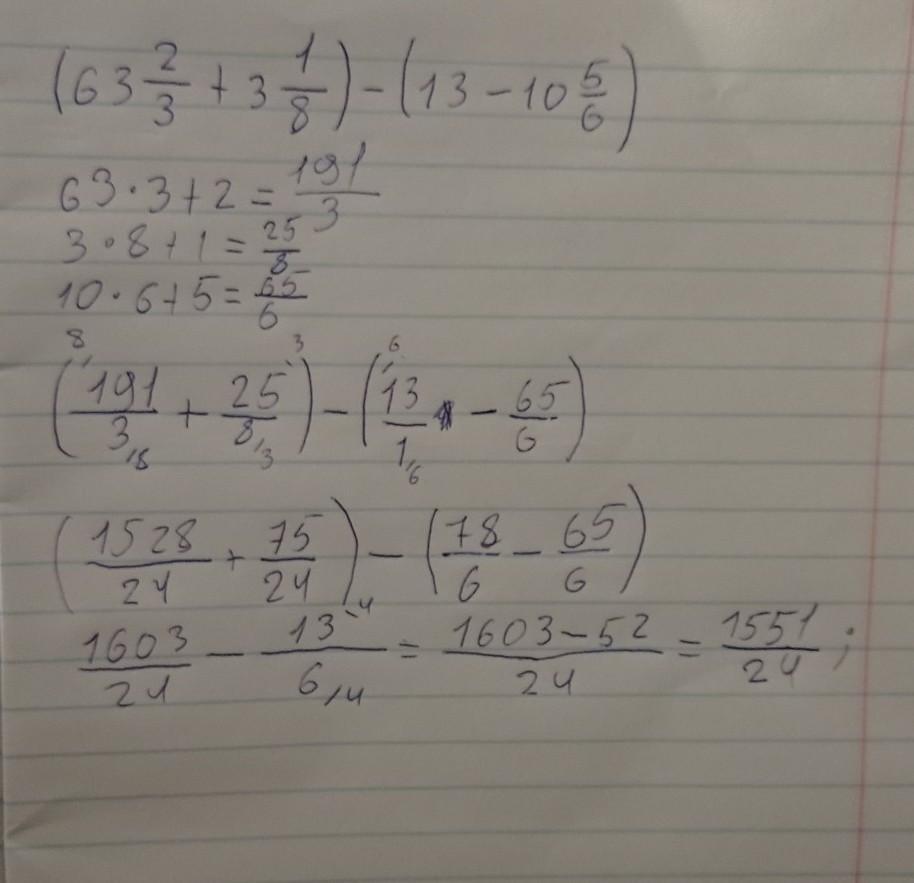 (63 2/3 + 3 1/8) - (13 - 10 5/6)
63 · 3 + 2 = 191/3
3 · 8 + 1 = 25/8
10 · 6 + 5 = 65/6
8 3 6
(191/3 + 25/8) - (13/1 - 65/6)
8 3 6
(1528/24 + 75/24) - (78/6 - 65/6)
1603/24 - 13 4/6 4 = 1603-52/24 = 1551/24;